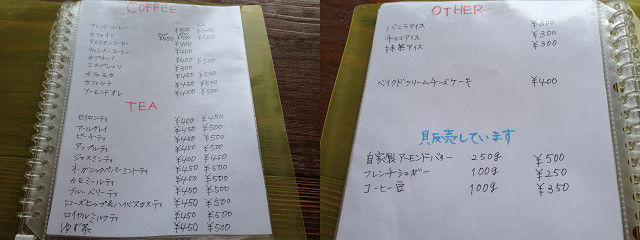 COFFEE
ブレンドコーヒー ¥400
カフェオレ
アメリカンコーヒー ¥400
ウィンナーコーヒー ¥400
カプチーノ ¥450 ¥500
エスプレッソ ¥300
カフェモカ ¥450 ¥500
カフェラテ ¥450 ¥500
アーモンドオレ ¥450 ¥500
TEA
セイロンティ ¥400 ¥450
アールグレイ ¥450 ¥500
ピーチティ ¥450 ¥500
アップルティ ¥450 ¥500
ジャスミンティ ¥400 ¥450
オーガニックペパーミントティ ¥450 ¥500
カモミールティ ¥450 ¥500
ブルーベリーティ ¥450 ¥500
ローズヒップ&ハイビスカスティ ¥450 ¥500
ロイヤルミルクティ ¥450 ¥500
ゆず茶 ¥450 ¥500
OTHER
バニラアイス ¥300
チョコアイス ¥300
抹茶アイス ¥300
ベイクドクリームチーズケーキ ¥400
販売しています
自家製アーモンドバター 250g ¥500
フレンチシュガー 100g ¥250
コーヒー豆 100g ¥350